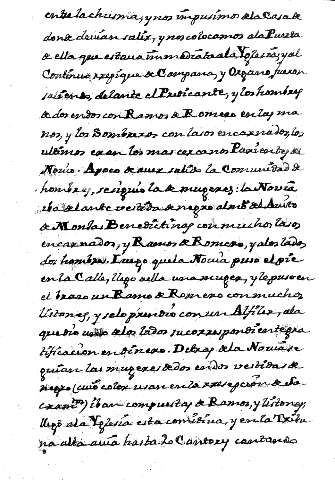 entre la chusma, y nos impusimos de la Casa de
donde devian salir, y nos colocamos a la Puerta
de ella que estaua immediata a la Yglesia, y al
Continuo repique de Campana, y Organo, fueron
saliendo, delante el Predicante, y los hombres
de dos en dos con Ramos de Romero en las ma
nos, y los Sombreros con lasos encarnados, los
ultimos eran los mas cercanos Parientes del
Novio. Apoco de aver salido la Comunidad de
hombres, se siguio la de mugeres: la Novia
iba delante vestida de negro al modo del Auito
de Monjas Benedictinas con muchos lasos
encarnados, y Ramos de Romero, y a los lados
dos hombres. Luego que la Novia puso el pie
en la Calle, llego a ella una muger, y le puso en
el braso un Ramo de Romero con muchos
listones, y se lo prendió con un Alfiler, a la
que dio uno de los lados su correspondiente gra
tificacion en dinero. Detras de la Novia se
guian las mugeres de dos en dos vestidas de
negro (cuio color usan en la resepcion de Sa
cramtos) iban compuestas de Ramos, y listones,
llegó a la Yglesia esta comitiva, y en la Tribu
na alta avia hasta 20 Cantores cantando